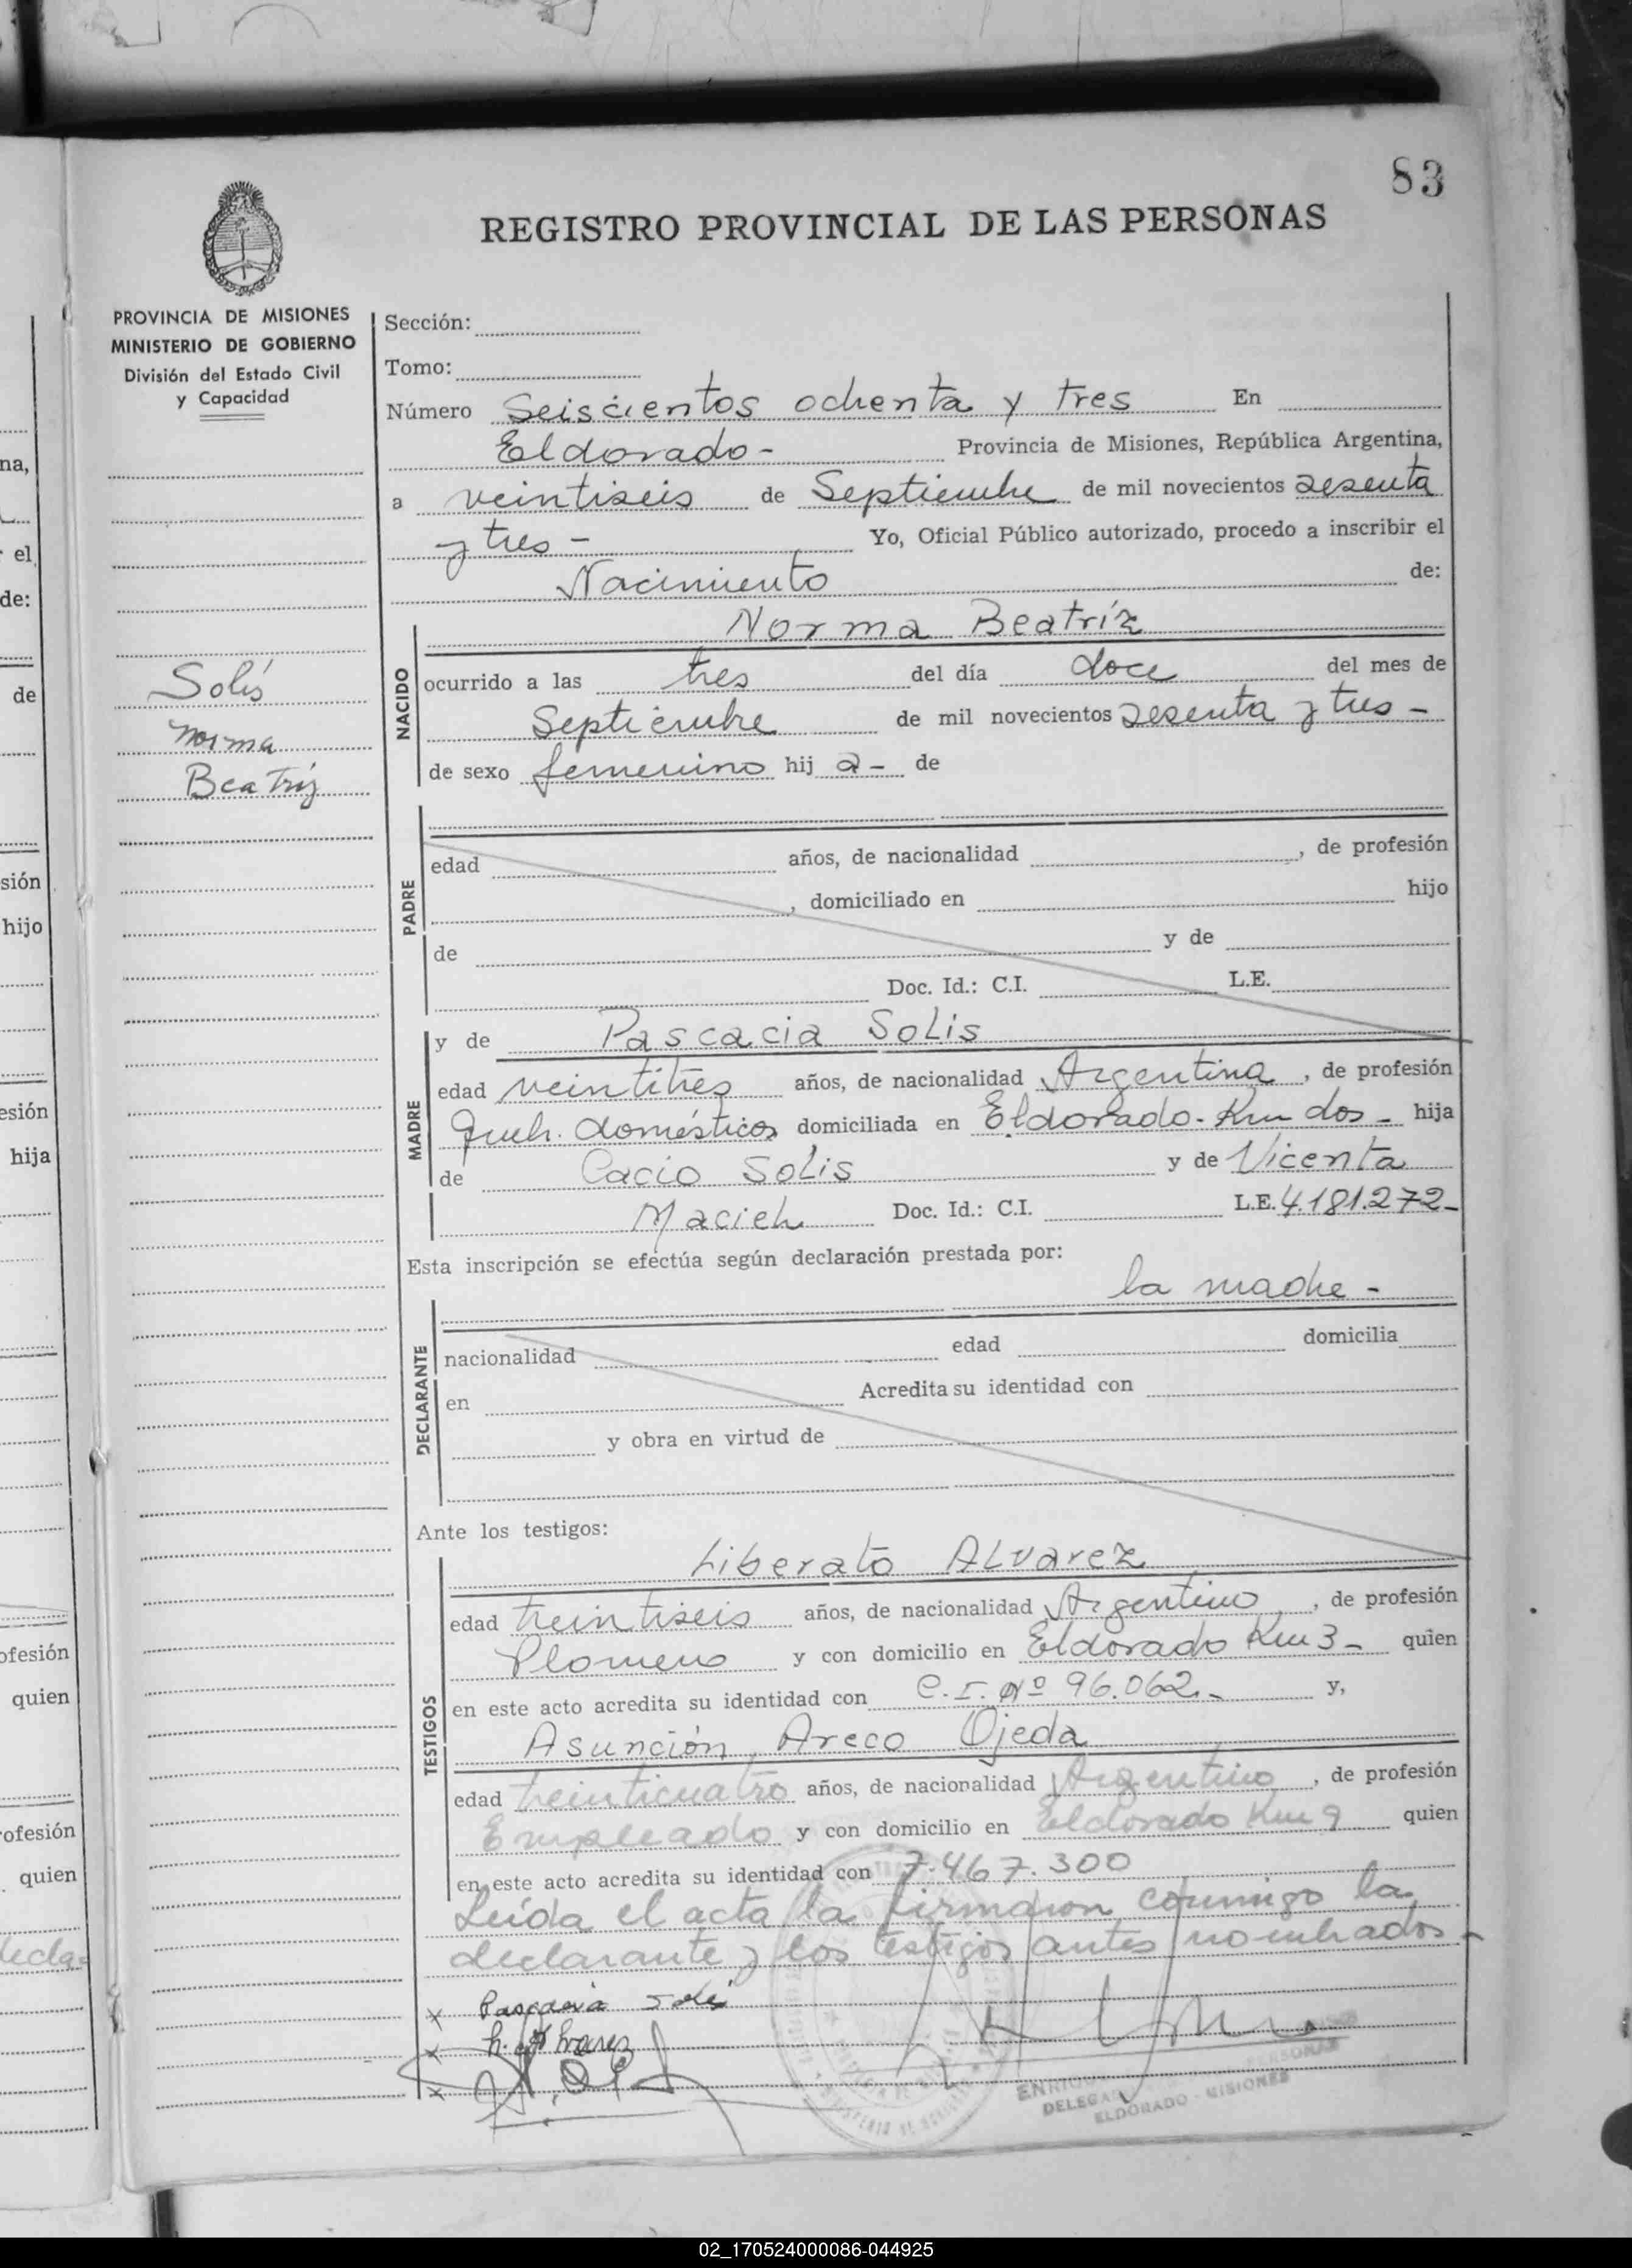 83
REGISTRO PROVINCIAL DE LAS PERSONAS
PROVINCIA DE MISIONES
MINISTERIO DE GOBIERNO
División del Estado Civil
y Capacidad
Solís
Norma
Beatríz
Sección:
Tomo:
Número Seiscientos ochenta y tres En
Eldorado- Provincia de Misiones, República Argentina,
a veintiseis de Septiembre de mil novecientos sesenta
y tres - Yo, Oficial Público autorizado, procedo a inscribir el
Nacimiento de:
Norma Beatríz
NACIDO
ocurrido a las tres del día doce del mes de
Septiembre de mil novecientos sesenta y tres -
de sexo femenino hij a - de
PADRE
edad años, de nacionalidad , de profesión
, domiciliado en hijo
de y de
Doc. Id.: C.I. L.E.
MADRE
y de Pascacia Solis
edad veintitres años, de nacionalidad Argentina , de profesión
Queh. domésticos domiciliada en Eldorado- Km dos - hija
de Cacio Solis y de Vicenta
Maciel Doc. Id.: C.I. L.E. 4.181.272-
Esta inscripción se efectúa según declaración prestada por:
la madre -
DECLARANTE
nacionalidad edad domicilia
en Acredita su identidad con
y obra en virtud de
Ante los testigos:
TESTIGOS
Liberato Alvarez
edad treintiseis años, de nacionalidad Argentino , de profesión
Plomero y con domicilio en Eldorado Km 3 - quien
en este acto acredita su identidad con C.I. Nº 96.062.- y,
Asunción Areco Ojeda
edad treinticuatro años, de nacionalidad Argentino , de profesión
Empleado y con domicilio en Eldorado Km 9 quien
en este acto acredita su identidad con 7.467.300
Leída el acta la firmaron conmigo la
declarante y los testigos antes nombrados -
x Pascacia Solis
x L. Alvarez
x
ELDORADO - MISIONES
na,
el
de:
de
sión
hijo
esión
hija
ofesión
quien
ofesión
quien
decla-
02_170524000086-044925